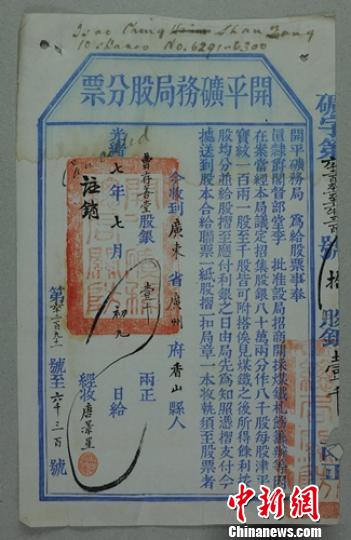 Tsao Ching Shan Tang
10 shares No. 6291-6300
開平礦務局股分票
礦字第
號 拾 股銀壹千
開平礦務局 爲給股票事奉
直隸爵閣督部堂李 批准設局招商開採煤鐵札飭籌辦等因
在案當經本局議定招集股銀八十萬兩分作八千股每股津平
寶紋一百兩一股至千股皆可附搭俟見煤鐵之後所得餘利按
股均分並給股摺至應付利銀之日由局先為知照憑摺支付今
據送到股本合給聯票一紙股摺一扣局章一本收執須至股票者
今收到廣東省廣州府香山縣人
曹存善堂股銀壹千兩正
光緒七年七月初九日給
註銷
經收唐
第六千二百九十一號至六千三百號
中新网
www.chinanews.com